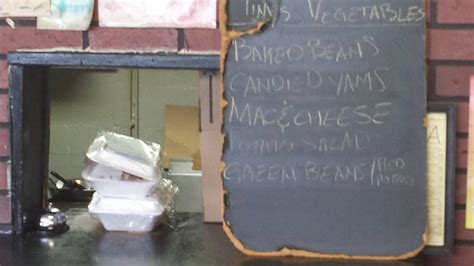 Tim's Vegetables
BAKED BEANS
CANDIED YAMS
MAC & CHEESE
POTATO SALAD
GREEN BEANS / RED
POTATO